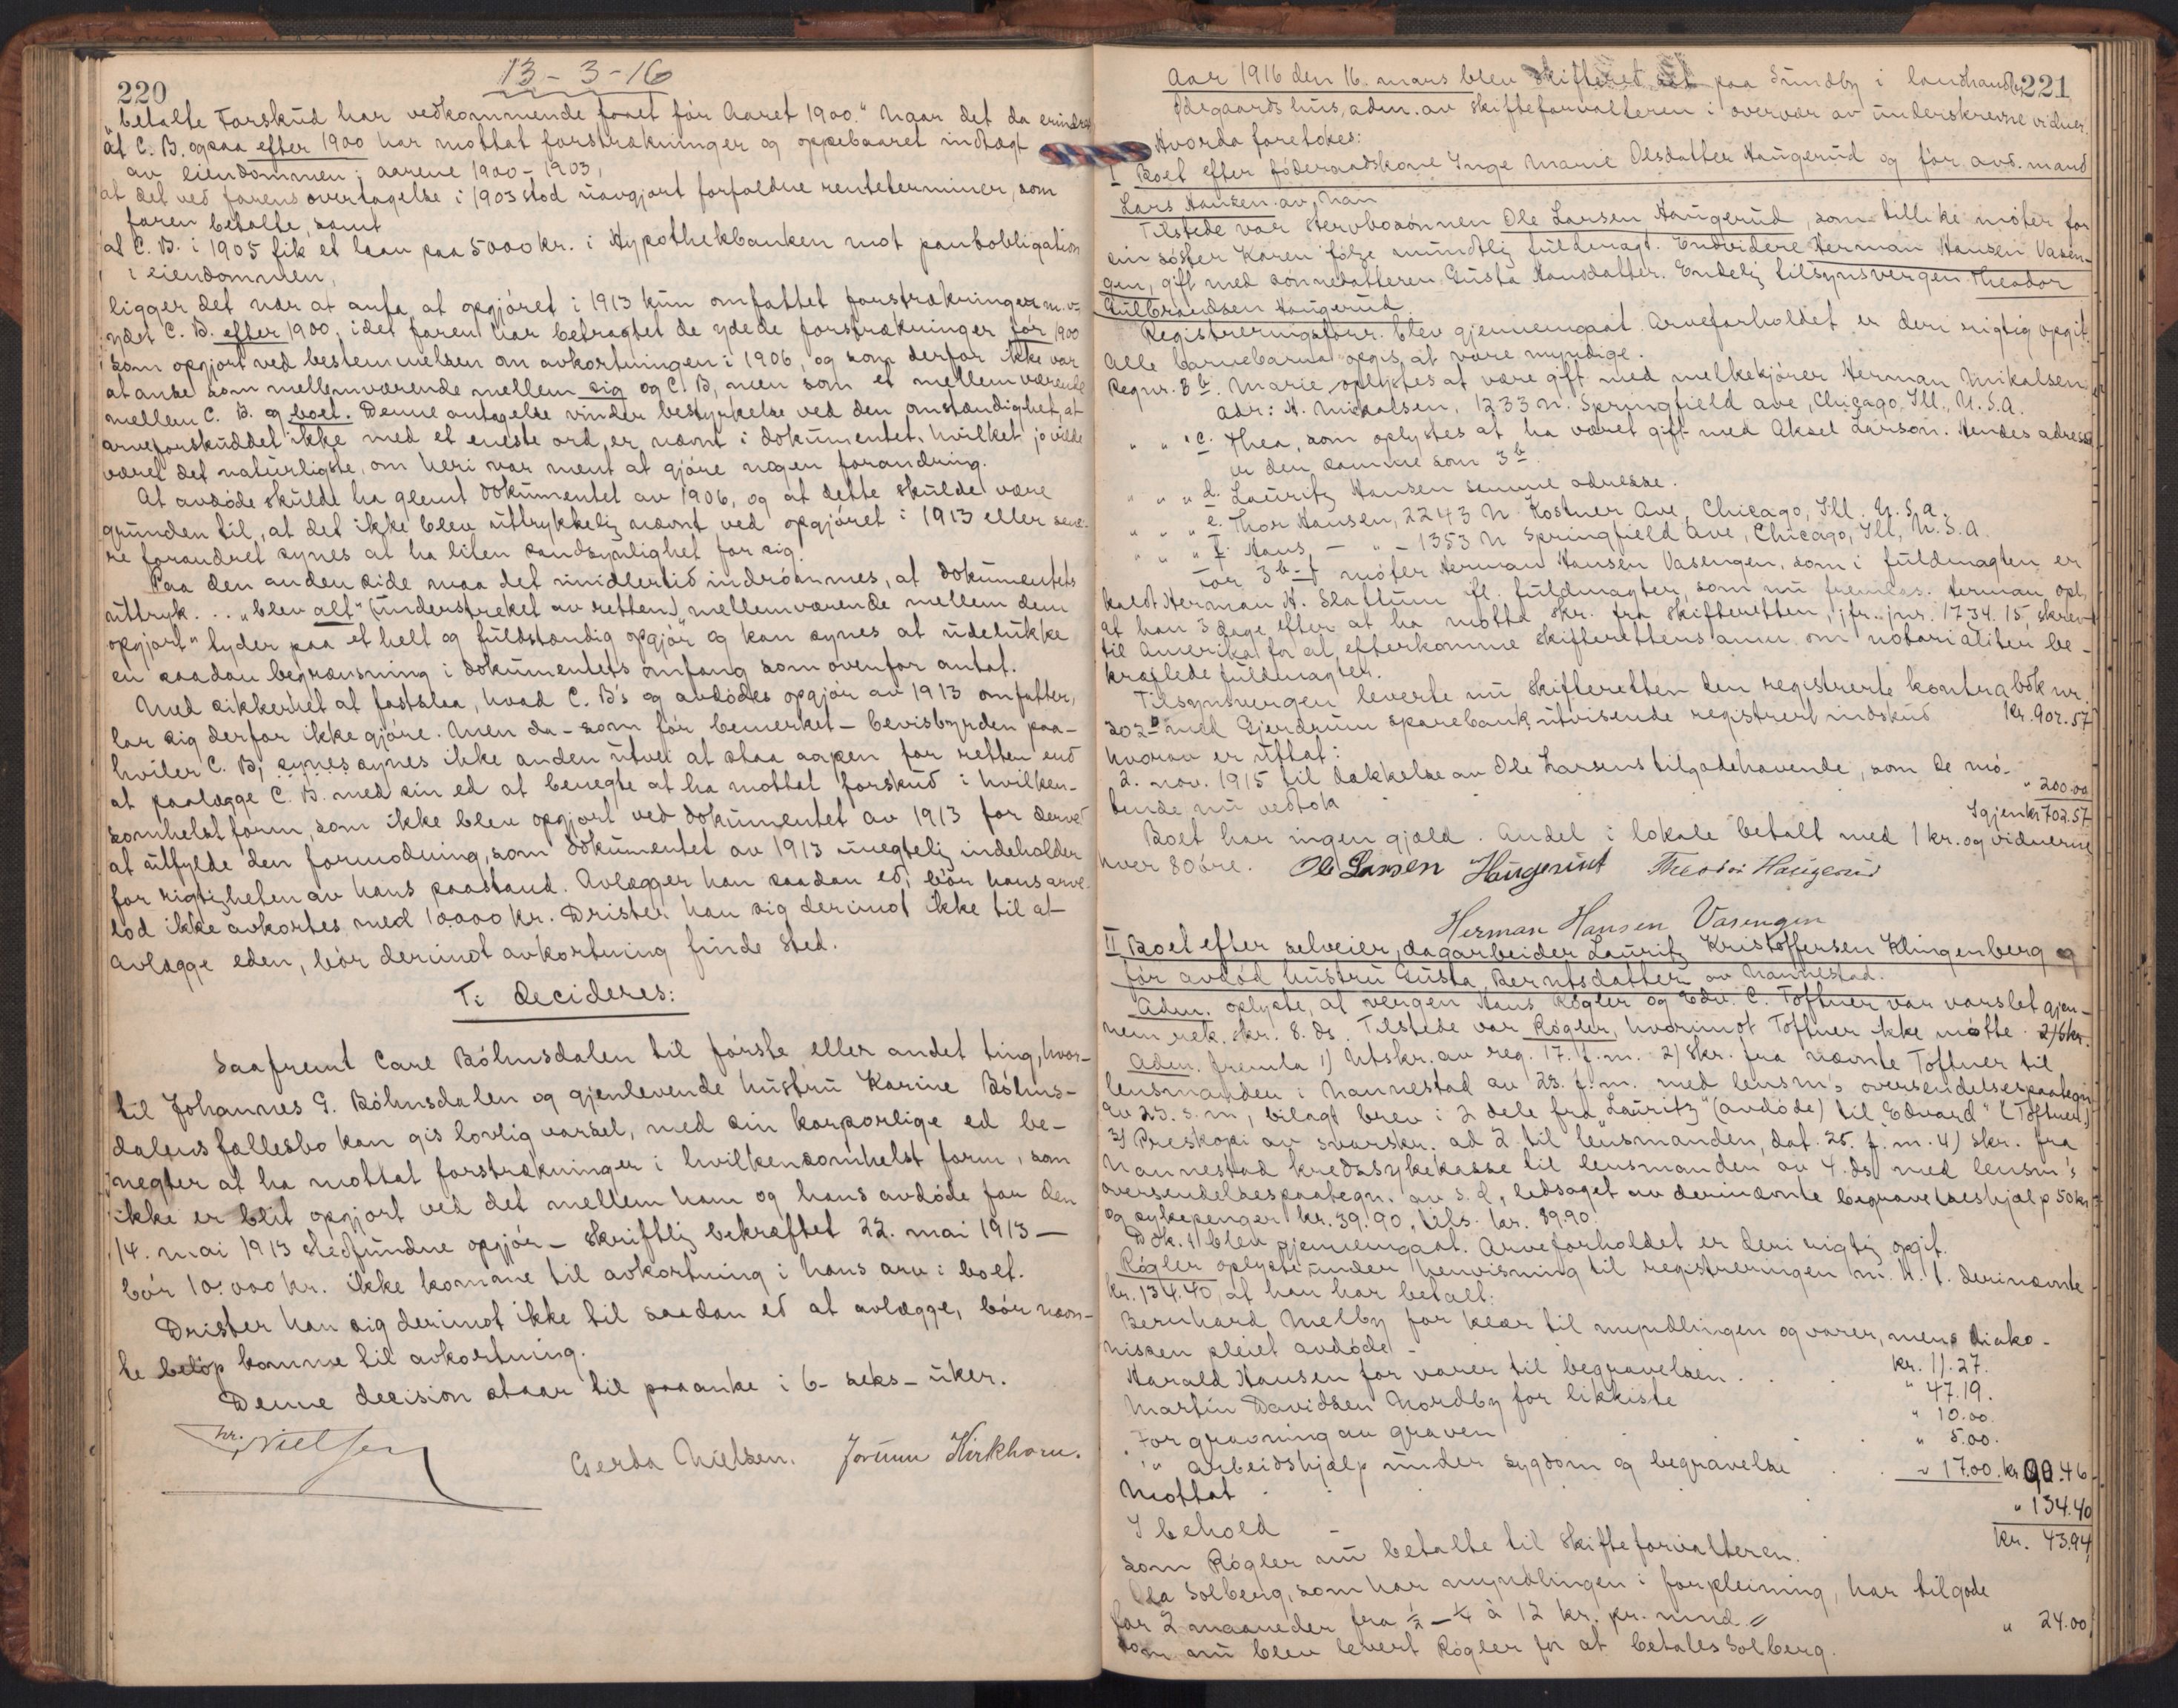 220
13-3-16
"betalte Forskud har vedkommende faaet før Aaret 1900." Naar det da erindres
at C. B. ogsaa efter 1900 har mottat forstrækninger og oppebaaret indtægt
av eiendommen i aarene 1900-1903,
at det ved farens overtagelse i 1903 stod uavgjort forfaldne renteterminer, som
faren betalte, samt
at C. B. i 1905 fik et laan paa 5000 kr. i Hypothekbanken mot pantobligation
i eiendommen,
ligger det nær at anta, at opgjøret i 1913 kun omfattet forstrækninger m. v.
ydet C. B. efter 1900, idet faren har betragtet de ydede forstrækninger før 1900
som opgjort ved bestemmelsen om avkortningen i 1906, og som derfor ikke var
at anse som mellemværende mellem sig og C. B, men som et mellemværende
mellem C. B. og boet. Denne antagelse vinder bestyrkelse ved den omstændighet, at
arveforskuddet ikke med et eneste ord er nævnt i dokumentet, hvilket jo vilde
været det naturligste, om heri var ment at gjøre nogen forandring.
At avdøde skulde ha glemt dokumentet av 1906, og at dette skulde være
grunden til, at det ikke blev uttrykkelig nævnt ved opgjøret i 1913 eller sene-
re forandret synes at ha liten sandsynlighet for sig.
Paa den anden side maa det imidlertid indrømmes, at dokumentets
uttryk... "blev alt" (understreket av retten) "mellemværende mellem dem
opgjort" lyder paa et helt og fuldstændig opgjør og kan synes at udelukke
en saadan begrænsning i dokumentets omfang som ovenfor antat.
Med sikkerhet at fastslaa, hvad C. B's og avdødes opgjør av 1913 omfatter,
lar sig derfor ikke gjøre. Men da - som før bemerket - bevisbyrden paa-
hviler C. B, synes synes ikke anden utvei at staa aapen for retten end
at paalægge C. B. med sin ed at benegte at ha mottat forskud i hvilken-
somhelst form, som ikke blev opgjort ved dokumentet av 1913 for derved
at utfylde den formodning, som dokumentet av 1913 unegtelig indeholder
for rigtigheten av hans paastand. Avlægger han saadan ed, bør hans arve-
lod ikke avkortes med 10000 kr. Drister han sig derimot ikke til at
avlægge eden, bør derimot avkortning finde sted.
Ti decideres:
Saafremt Carl Böhnsdalen til første eller andet ting, hvor-
til Johannes G. Böhnsdalen og gjenlevende hustru Karine Böhns-
dalens fællesbo kan gis lovlig varsel, med sin korporlige ed be-
negter at ha mottat forstrækninger i hvilkensomhelst form, som
ikke er blit opgjort ved det mellem ham og hans avdøde far den
14. mai 1913 stedfundne opgjør - skriftlig bekræftet 22. mai 1913 -
bør 10.000 kr. ikke komme til avkortning i hans arv i boet.
Drister han sig derimot ikke til saadan ed at avlægge, bør nævn-
te beløp komme til avkortning.
Denne decision staar til paaanke i 6 - seks - uker.
Nielsen
Gerda Nielsen. Jorunn Kirkhorn.
221
Aar 1916 den 16. mars blev skifteret sat paa Sundby i landhandler
Ødegaards hus, adm. av skifteforvalteren i overvær av underskrevne vidner.
Hvorda foretokes:
I Boet efter føderaadskone Inge Marie Olsdatter Haugerud og før avd. mand
Lars Hansen av Nan
Tilstede var stervbosønnen Ole Larsen Haugerud, som tillike møter for
sin søster Karen ifølge mundtlig fuldmagt. Endvidere Herman Hansen Vasen-
gen, gift med sønnedatteren Gusta Hansdatter. Endelig tilsynsvergen Theodor
Gulbrandsen Haugerud.
Registreringsforr. blev gjennemgaat. Arveforholdet er deri rigtig opgit.
Alle barnebarna opgis at være myndige.
Regnr. 3 b. Marie oplystes at være gift med melkekjører Herman Mikalsen
adr: H. Mickalsen, 1233 N. Springfield ave, Chicago, Ill., U. S. A.
" " " c. Thea, som oplystes at ha været gift med Aksel Larson. Hendes adresse
er den samme som 3 b.
" " " d. Lauritz Hansen samme adresse.
" " " e. Thor Hansen, 2243 N Kostner Ave, Chicago, Ill. U. S. A.
" " " f. Hans, - " - 1353 N Springfield Ave, Chicago, Ill, U. S. A.
For 3 b-f møter Herman Hansen Vasengen, som i fuldmagten er
kaldt Herman H. Slattum ifl. fuldmagter, som nu fremlas. Herman opl.
at han 3 dage efter at ha motta skr. fra skifteretten, jfr. jnr. 1734.15, skrev
til Amerika for at efterkomme skifterettens anm om notarialiter be-
kræftede fuldmagter.
Tilsynsvergen leverte nu skifteretten den registrerte kontrabok nr.
302 b med Gjerdrum sparebank utvisende registrert indskud Kr. 902.57
hvorav er uttat:
2. nov. 1915 til dækkelse av Ole Larsens tilgodehavende, som de mø-
tende nu vedtok " 200.00
Igjen kr 702.57
Boet har ingen gjæld. Andel i lokale betalt med 1 kr. og vidnerne
hver 80 øre. Ole Larsen Haugerud Theodor Haugerud
Herman Hansen Vasengen
II Boet efter selveier, dagarbeider Lauritz Kristoffersen Klingenberg og
før avdød hustru Gusta Berntsdatter av Nannestad.
Adm. oplyste, at vergen Hans Rögler og Edv. C. Toftner var varslet gjen-
nem rek. skr. 8. ds. Tilstede var Rögler, hvorimot Toftner ikke møtte. 2) Skr.
Adm. fremla 1) Utskr. av reg. 17. f. m. 2) Skr. fra nævnte Toftner til
lensmanden i Nannestad av 23. f. m. med lensm's oversendelsespaategn.
av 25. s. m, bilagt brev i 2 dele fra "Lauritz" (avdøde) til "Edvard" (Toftner)
3) Preskopi av svarskr. ad 2 til lensmanden, dat. 25. f. m. 4) Skr. fra
Nannestad kredssykekasse til lensmanden av 4. ds med lensm's
oversendelsespaategn. av s. d, ledsaget av derinævnte begravelseshjælp 50 kr.
og sykepenger kr. 39.90, tils. kr. 89.90.
Dok. 1 blev gjennemgaat. Arveforholdet er deri rigtig opgit.
Rögler oplyste under henvisning til registreringen m. h. t. derinævnte
kr. 134.40, at han har betalt:
Bernhard Melby for klær til myndlingen og varer, mens diako-
nissen pleiet avdøde - kr. 11.27.
Harald Hansen for varer til begravelsen . . " 47.19.
Martin Davidsen Nordby for likkiste " 10.00.
For gravning av graven " 5.00.
" arbeidshjælp under sygdom og begravelse . . " 17.00. kr 90.46
Mottat . " 134.40
I behold - Kr. 43.94
som Rögler nu betalte til skifteforvalteren.
Ola Solberg, som har myndlingen i forpleining, har tilgode
for 2 maaneder fra 1/2 - 1/4 à 12 kr. pr. mnd = " 24.00
som nu blev levert Rögler for at betales Solberg.